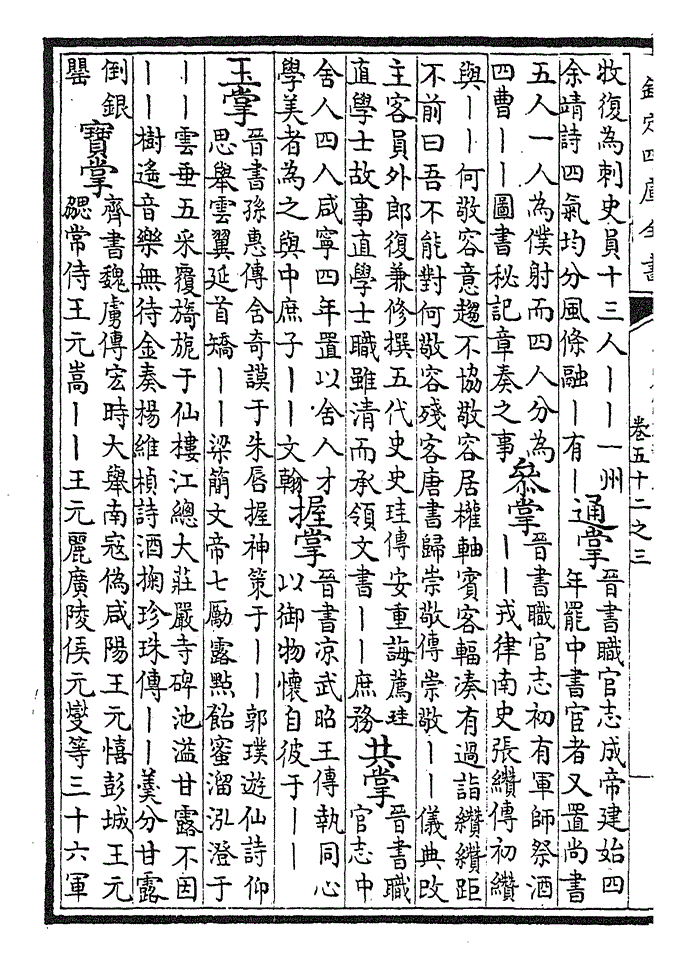 欽定四庫全書
卷五十二之三
牧復為刺史員十三人丨丨一州
余靖詩四氣均分風條融丨有丨
通掌
晉書職官志成帝建始四
年罷中書宦者又置尚書
五人一人為僕射而四人分為
四曹丨丨圖書秘記章奏之事
叅掌
晉書職官志初有軍師祭酒
丨丨戎律南史張纘傳初纘
與丨丨何敬容意趨不協敬容居權軸賓客輻凑有過詣纘纘距
不前曰吾不能對何敬容殘客唐書歸崇敬傳崇敬丨丨儀典改
主客員外郎復兼修撰五代史史珪傳安重誨薦珪
直學士故事直學士職雖清而承領文書丨丨庶務
共掌
晉書職
官志中
舍人四人咸寧四年置以舍人才
學美者為之與中庶子丨丨文翰
握掌
晉書凉武昭王傳執同心
以御物懷自彼于丨丨
玉掌
晉書孫惠傳含奇謨于朱唇握神策于丨丨郭璞遊仙詩仰
思舉雲翼延首矯丨丨梁簡文帝七勵露點飴蜜溜泓澄于
丨丨雲垂五采覆旖旎于仙樓江總大莊嚴寺碑池溢甘露不因
丨丨樹遙音樂無待金奏楊維楨詩酒掬珍珠傳丨丨羹分甘露
倒銀
罌
寶掌
齊書魏虜傳宏時大舉南寇偽咸陽王元憘彭城王元
勰常侍王元嵩丨丨王元麗廣陵侯元燮等三十六軍